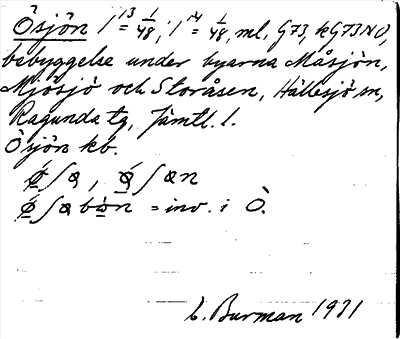 Ösjön 1 13 = 1/48, 1 14 = 1/48, ml, G73, kG73NO,
bebyggelse under byarna Måsjön,
Mjösjö och Storåsen, Hällesjö sn,
Ragunda tg, Jämtl. l.
Ösjön kb.
= inv. i Ö.
L. Burman 1931